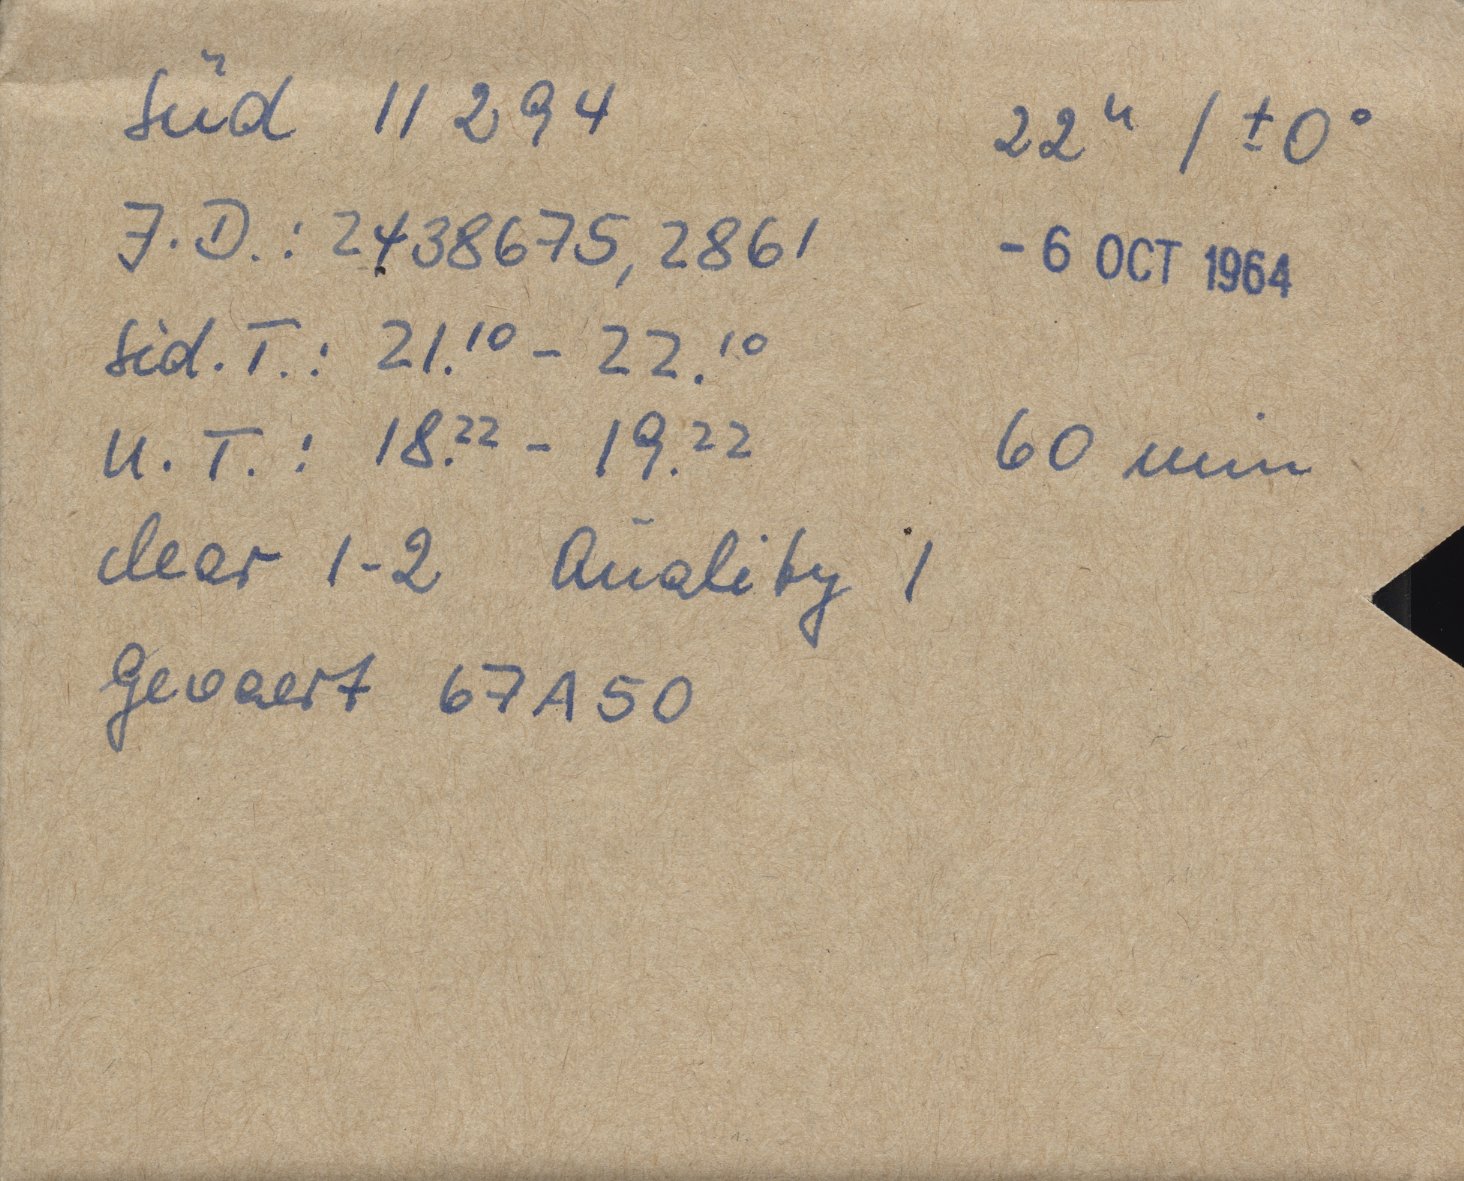 Süd 11294 22ʰ / ±0°
J.D.: 2438675,2861 - 6 OCT 1964
Sid.T.: 21.¹⁰ - 22.¹⁰
U.T.: 18.²² - 19.²² 60 min
clear 1-2 Quality 1
Gevaert 67A50